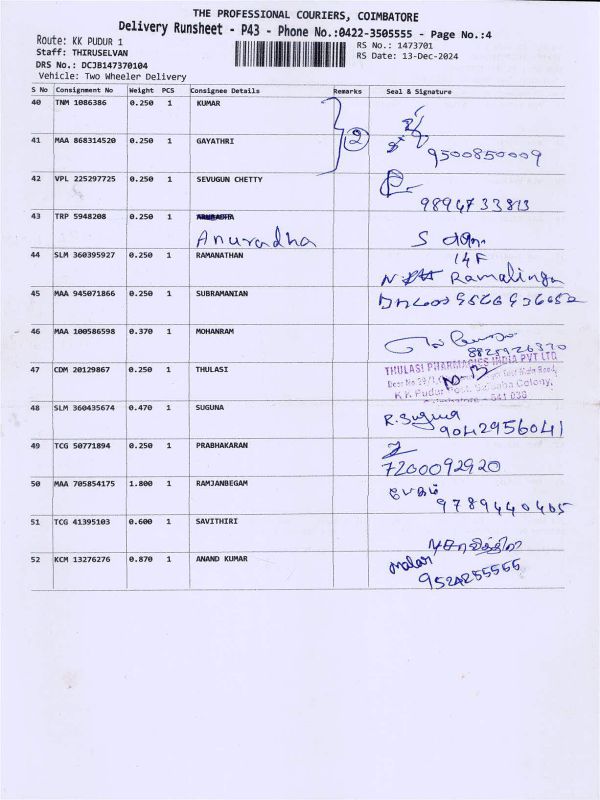 THE PROFESSIONAL COURIERS, COIMBATORE
Delivery Runsheet - P43 - Phone No.:0422-3505555 - Page No.:4
Route: KK PUDUR 1
RS No.: 1473701
Staff: THIRUSELVAN
RS Date: 13-Dec-2024
DRS No.: DCJB147370104
Vehicle: Two Wheeler Delivery
S No Consignment No Weight PCS Consignee Details Remarks Seal & Signature
40 TNM 1086386 0.250 1 KUMAR
2
41 MAA 868314520 0.250 1 GAYATHRI
9500850009
42 VPL 225297725 0.250 1 SEVUGUN CHETTY
9894733813
43 TRP 5948208 0.250 1 ANURADHA
Anuradha
44 SLM 360395927 0.250 1 RAMANATHAN
14F
Ramalingam
45 MAA 945071866 0.250 1 SUBRAMANIAN
46 MAA 100586598 0.370 1 MOHANRAM
8825926320
47 CDM 20129867 0.250 1 THULASI
THULASI PHARMACIES INDIA PVT LTD
K K Pudur Post, Saibaba Colony,
Coimbatore - 641 038
48 SLM 360435674 0.470 1 SUGUNA
R. Suguna
9042956041
49 TCG 50771894 0.250 1 PRABHAKARAN
7200092920
50 MAA 705854175 1.800 1 RAMJANBEGAM
பேகம்
9789440405
51 TCG 41395103 0.600 1 SAVITHIRI
சாவித்திரி
52 KCM 13276276 0.870 1 ANAND KUMAR
Malar
9524255555